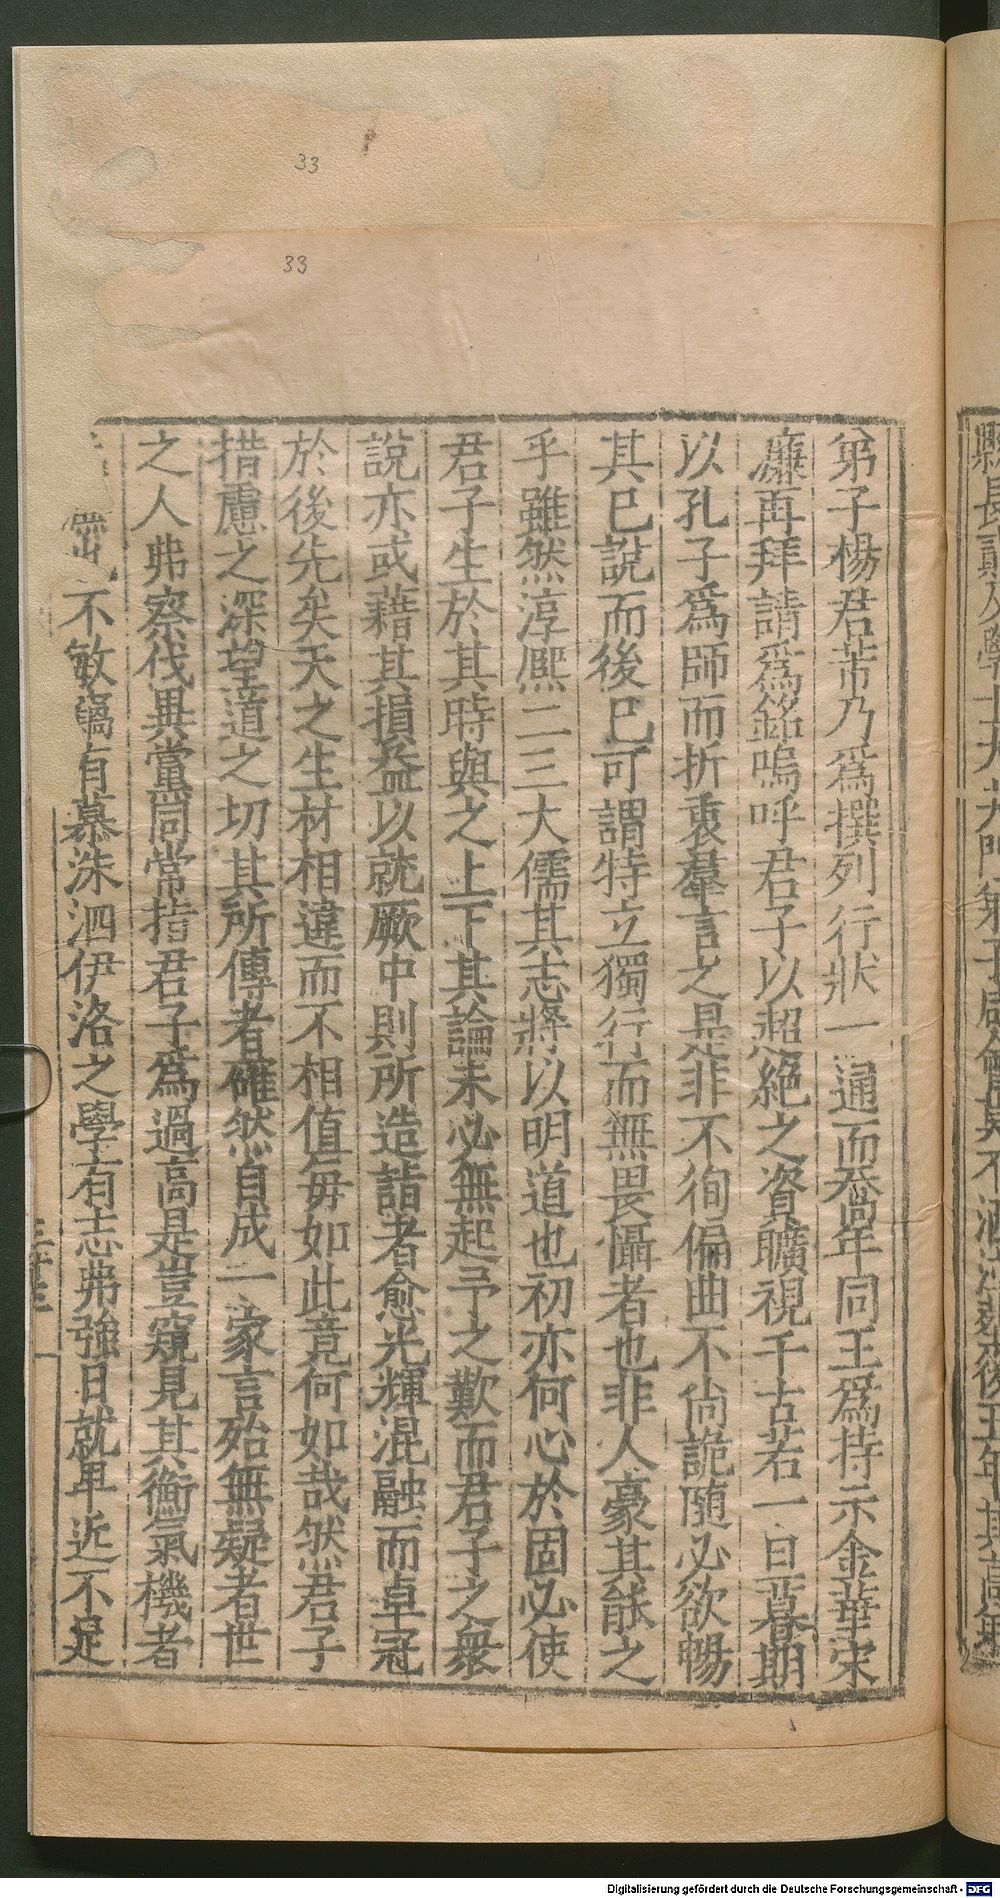 33
33
弟子楊君芾乃爲撰列行狀一通而喬年同王爲持示金華宋
濂再拜請爲銘嗚呼君子以超絶之資曠視千古若一旦暮期
以孔子爲師而折衷羣言之是非不徇偏曲不尙詭随必欲暢
其已說而後已可謂特立獨行而無畏懾者也非人豪其能之
乎雖然淳熈二三大儒其志將以明道也初亦何心於固必使
君子生於其時與之上下其論未必無起予之歎而君子之衆
說亦或藉其損益以就厥中則所造詣者愈光輝混融而卓冠
於後先矣天之生材相違而不相值毎如此竟何如哉然君子
措慮之深望道之切其所傳者確然自成一家言殆無疑者世
之人弗察伐異黨同常指君子爲過高是豈窺見其衡氣機者
不敏竊有慕洙泗伊洛之學有志弗強日就卑近不足
Digitalisierung gefördert durch die Deutsche Forschungsgemeinschaft - DFG